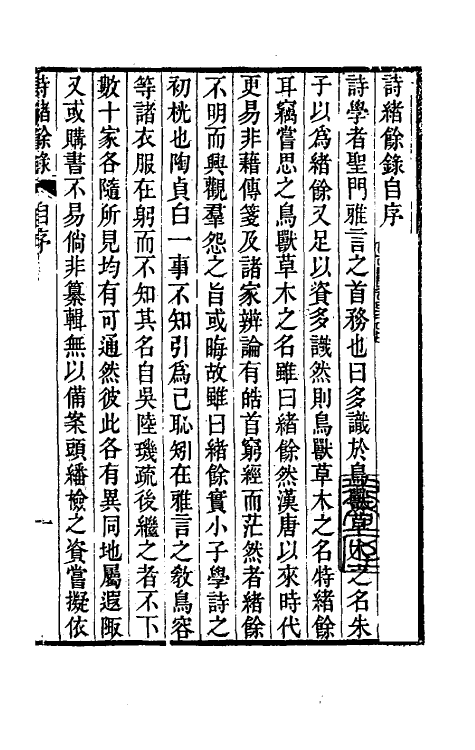 詩緒餘錄自序
詩學者聖門雅言之首務也曰多識於鳥獸草木之名朱
子以為緒餘又足以資多識然則鳥獸草木之名特緒餘
耳竊嘗思之鳥獸草木之名雖曰緒餘然漢唐以來時代
更易非藉傳箋及諸家辨論有皓首窮經而茫然者緒餘
不明而興觀羣怨之旨或晦故雖曰緒餘實小子學詩之
初桄也陶貞白一事不知引為己恥矧在雅言之敎烏容
等諸衣服在躬而不知其名自吳陸璣疏後繼之者不下
數十家各隨所見均有可通然彼此各有異同地屬遐陬
又或購書不易倘非纂輯無以備案頭繙檢之資嘗擬依
詩緒餘錄 自序 一